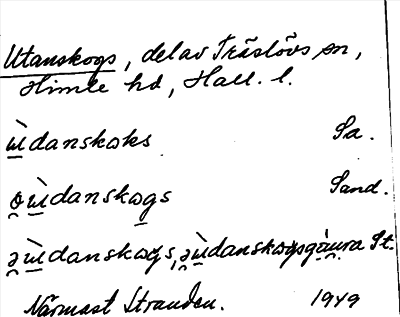 Utanskogs, del av Träslövs sn,
Himle hd, Hall. l.
ùdanskoks Sa.
o̯ùdanskogs Sand.
ə̯ùdanskogs, ə̯ùdanskogsgàu̯ra St.
Närmast Stranden. 1949